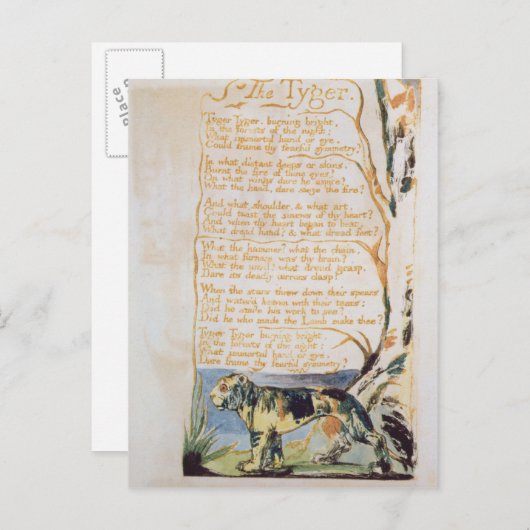 The Tyger.
Tyger Tyger, burning bright,
In the forests of the night;
What immortal hand or eye,
Could frame thy fearful symmetry?
In what distant deeps or skies,
Burnt the fire of thine eyes?
On what wings dare he aspire?
What the hand, dare sieze the fire?
And what shoulder, & what art,
Could twist the sinews of thy heart?
And when thy heart began to beat,
What dread hand? & what dread feet?
What the hammer? what the chain,
In what furnace was thy brain?
What the anvil? what dread grasp,
Dare its deadly terrors clasp?
When the stars threw down their spears
And water'd heaven with their tears:
Did he smile his work to see?
Did he who made the Lamb make thee?
Tyger Tyger burning bright,
In the forests of the night:
What immortal hand or eye,
Dare frame thy fearful symmetry?
place